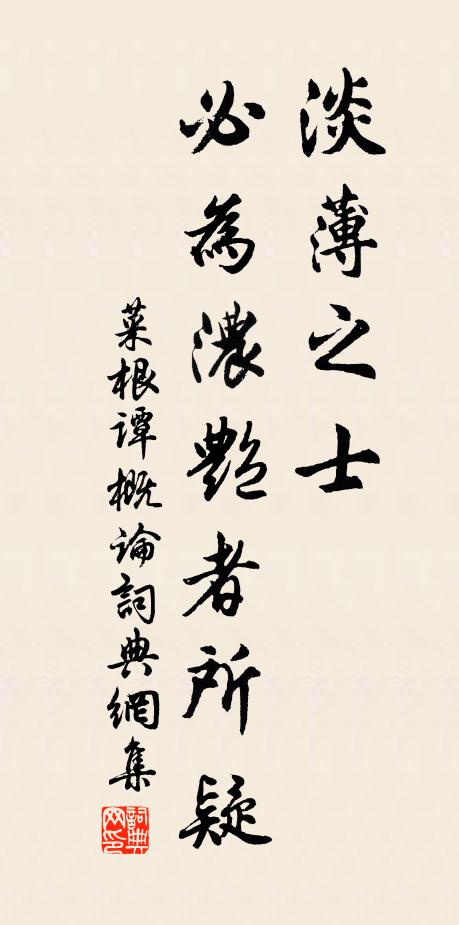 淡薄之士
必為濃艷者所疑
菜根譚概論詞典網集
詞典網印